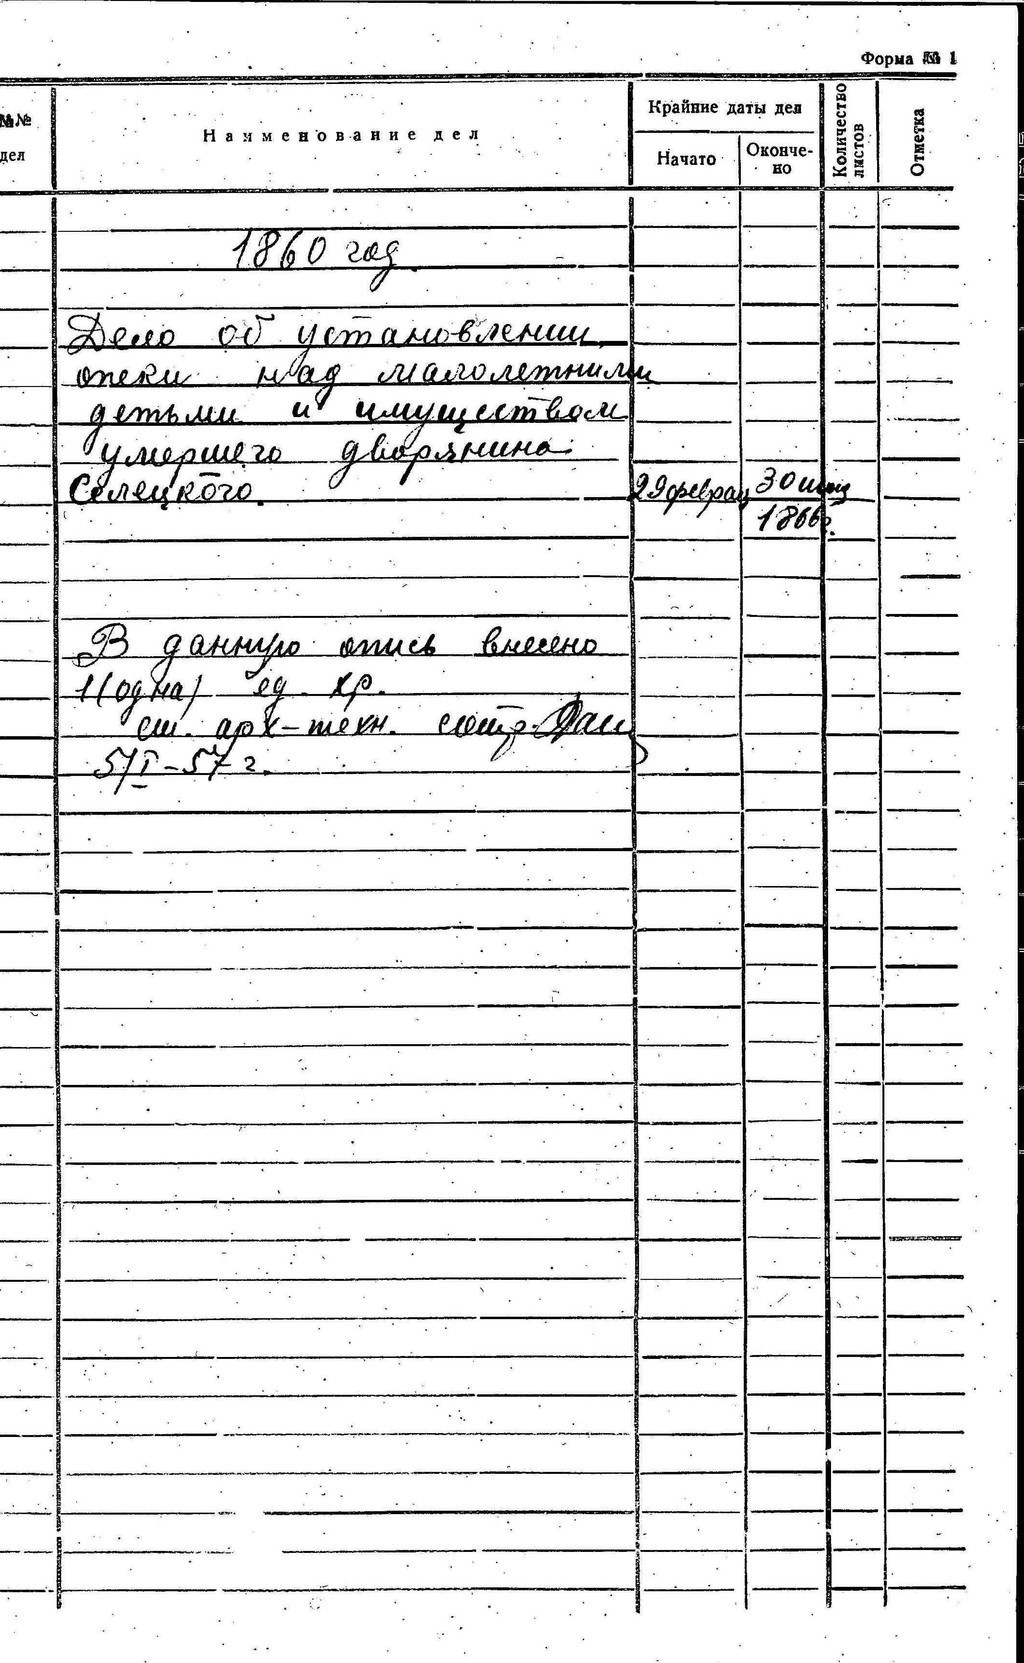 Форма № 1
№№ дел
Наименование дел
Крайние даты дел
Начато
Окончено
Количество листов
Отметка
1860 год
Дело об установлении
опеки над малолетними
детьми и имуществом
умершего дворянина
Селецкого.
29 феврал
30
1866г.
В данную опись внесено
1 (одна) ед. хр.
ст. арх-техн. сотр.
5/I-57 г.